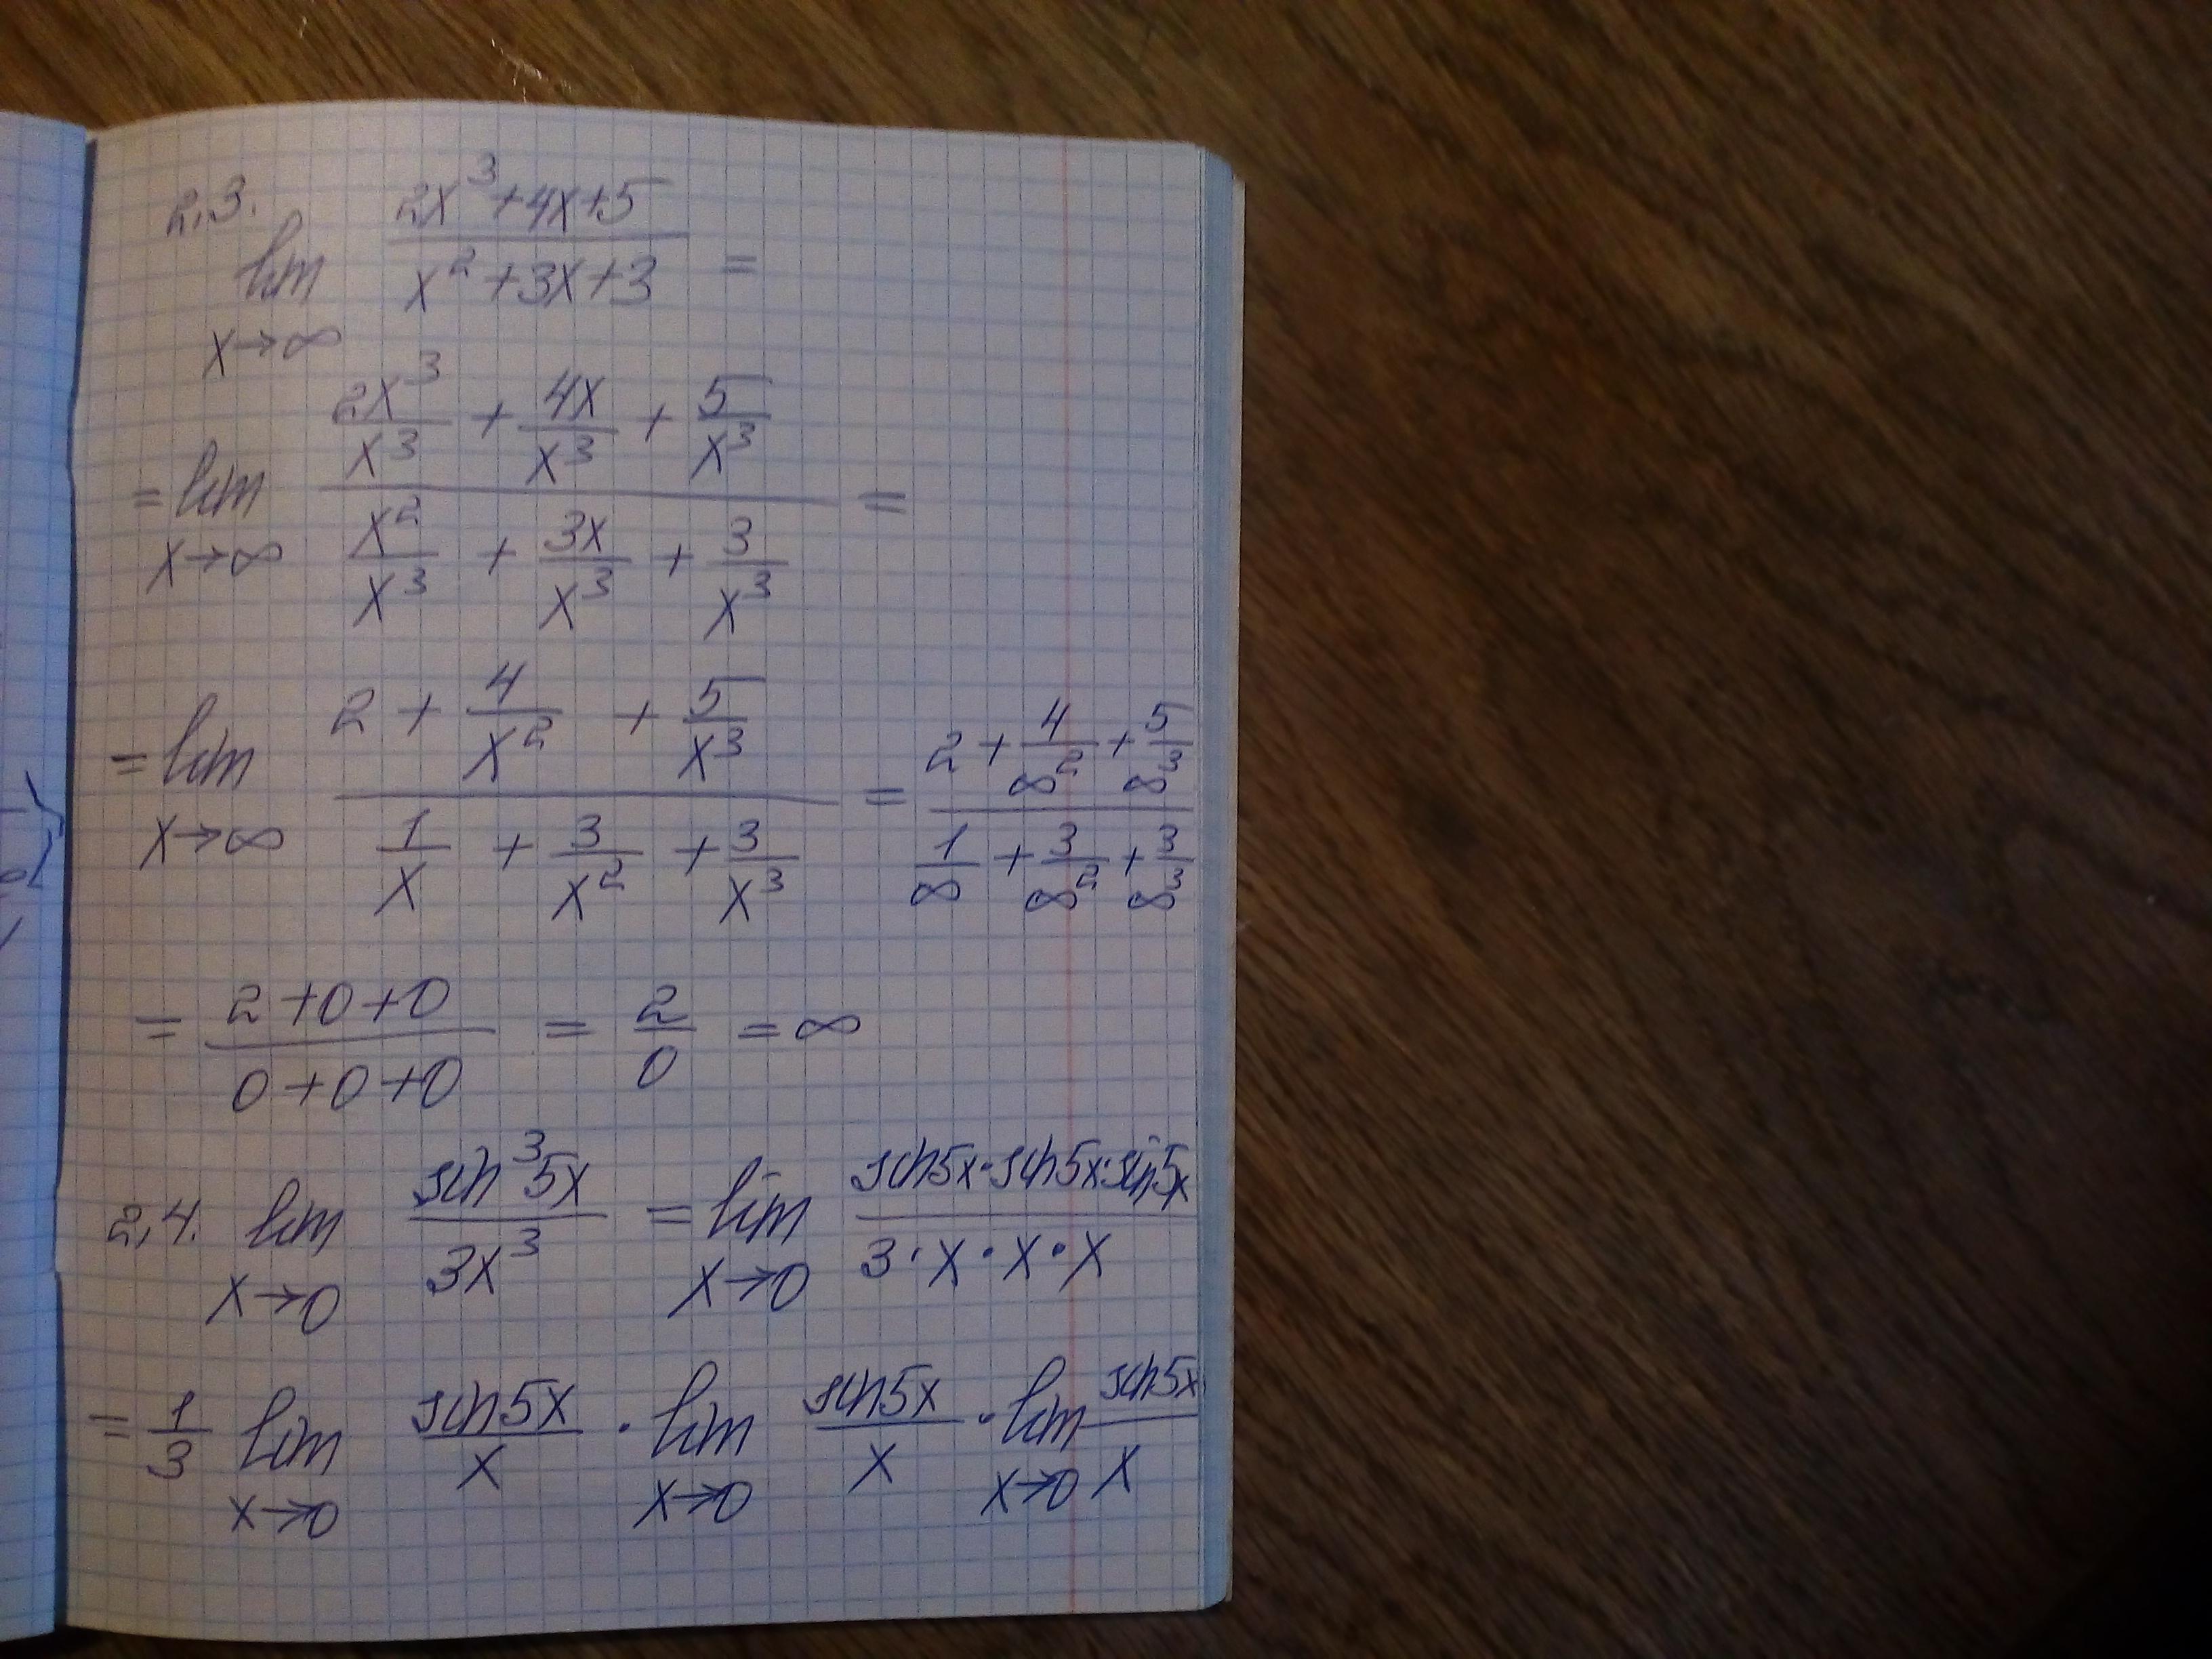 2,3.
lim x→∞ (2x³+4x+5)/(x²+3x+3) =
= lim x→∞ (2x³/x³ + 4x/x³ + 5/x³)/(x²/x³ + 3x/x³ + 3/x³) =
= lim x→∞ (2 + 4/x² + 5/x³)/(1/x + 3/x² + 3/x³) = (2 + 4/∞² + 5/∞³)/(1/∞ + 3/∞² + 3/∞³)
= (2+0+0)/(0+0+0) = 2/0 = ∞
2,4. lim x→0 sin³5x/3x³ = lim x→0 (sin5x·sin5x·sin5x)/(3·x·x·x)
= 1/3 lim x→0 sin5x/x · lim x→0 sin5x/x · lim x→0 sin5x/x